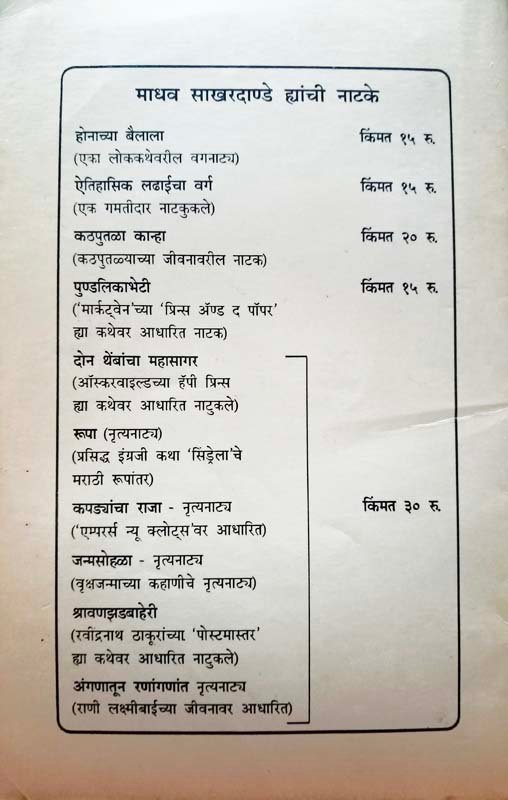 माधव साखरदाण्डे ह्यांची नाटके
होनाच्या बैलाला किंमत १५ रु.
(एका लोककथेवरील वगनाट्य)
ऐतिहासिक लढाईचा वर्ग किंमत १५ रु.
(एक गमतीदार नाटकुकले)
कठपुतळा कान्हा किंमत २० रु.
(कठपुतळ्याच्या जीवनावरील नाटक)
पुण्डलिकाभेटी किंमत १५ रु.
('मार्कट्वेन'च्या 'प्रिन्स ॲण्ड द पॉपर'
ह्या कथेवर आधारित नाटक)
दोन थेंबांचा महासागर
(ऑस्करवाइल्डच्या हॅपी प्रिन्स
ह्या कथेवर आधारित नाटुकले)
रूपा (नृत्यनाट्य)
(प्रसिद्ध इंग्रजी कथा 'सिंड्रेला'चे
मराठी रूपांतर)
कपड्यांचा राजा - नृत्यनाट्य किंमत ३० रु.
('एम्पर्स न्यू क्लोट्स'वर आधारित)
जन्मसोहळा - नृत्यनाट्य
(वृक्षजन्माच्या कहाणीचे नृत्यनाट्य)
श्रावणझडबाहेरी
(रवींद्रनाथ ठाकूरांच्या 'पोस्टमास्तर'
ह्या कथेवर आधारित नाटुकले)
अंगणातून रणांगणांत नृत्यनाट्य
(राणी लक्ष्मीबाईच्या जीवनावर आधारित)